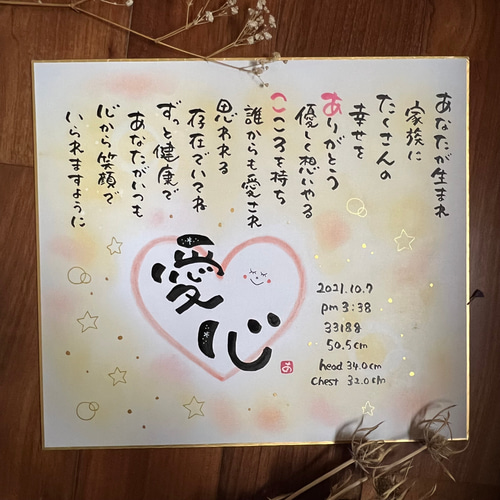 あなたが生まれ
家族に
たくさんの
幸せを
ありがとう
優しく想いやる
こころを持ち
誰からも愛され
思われる
存在でいてね
ずっと健康で
あなたがいつも
心から笑顔で
いられますように
愛心
お
2021.10.7
pm 3:38
3318g
50.5cm
head 34.0cm
Chest 32.0cm